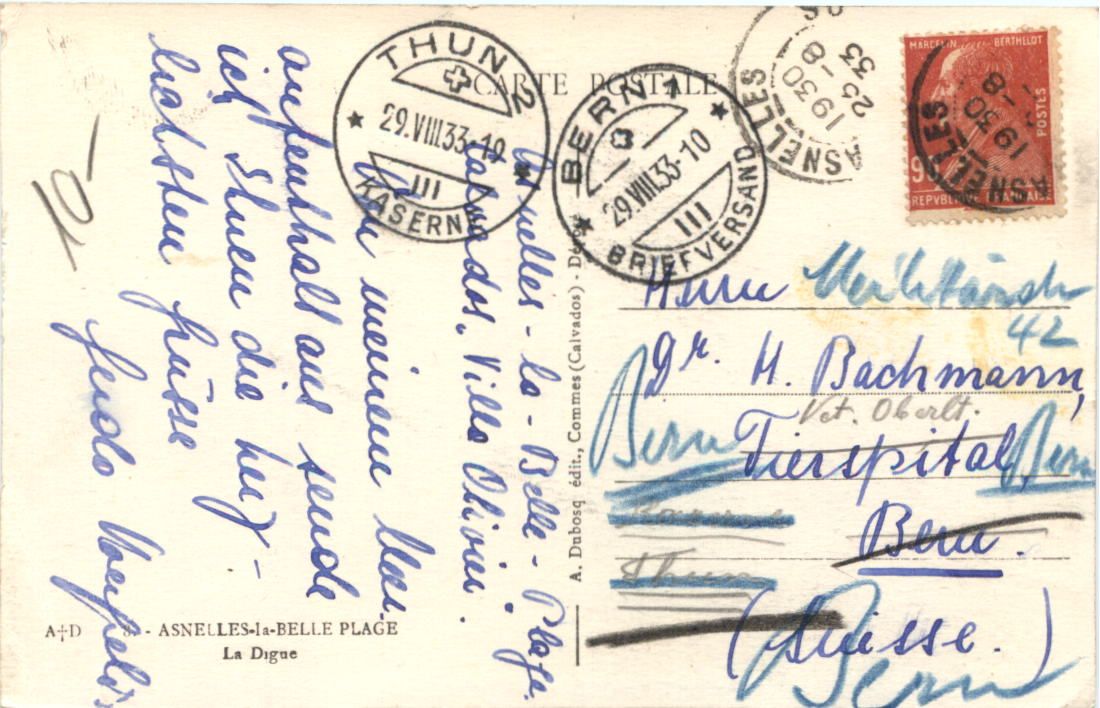 CARTE POSTALE
Asnelles-la-Belle-Plage.
Calvados. Villa Olivini.
Von meinem Meer-
aufenthalt aus sende
ich Ihnen die herz-
lichsten Grüsse
THUN 2
29.VIII.33-19
III
KASERNE
BERN 1
29.VIII.33-10
III
BRIEFVERSAND
ASNELLES
1930
25-8
33
MARCELIN BERTHELOT
POSTES
REPVBLIQVE FRANÇAISE
ASNELLES
1930
-8
Herrn
42
Dr. H. Bachmann,
Vet. Oberlt.
Tierspital
Bern
Bern
Bern.
Kaserne
Thun
(Suisse.)
Bern
A. Dubosq édit., Commes (Calvados) -
A†D
- ASNELLES-la-BELLE PLAGE
La Digue